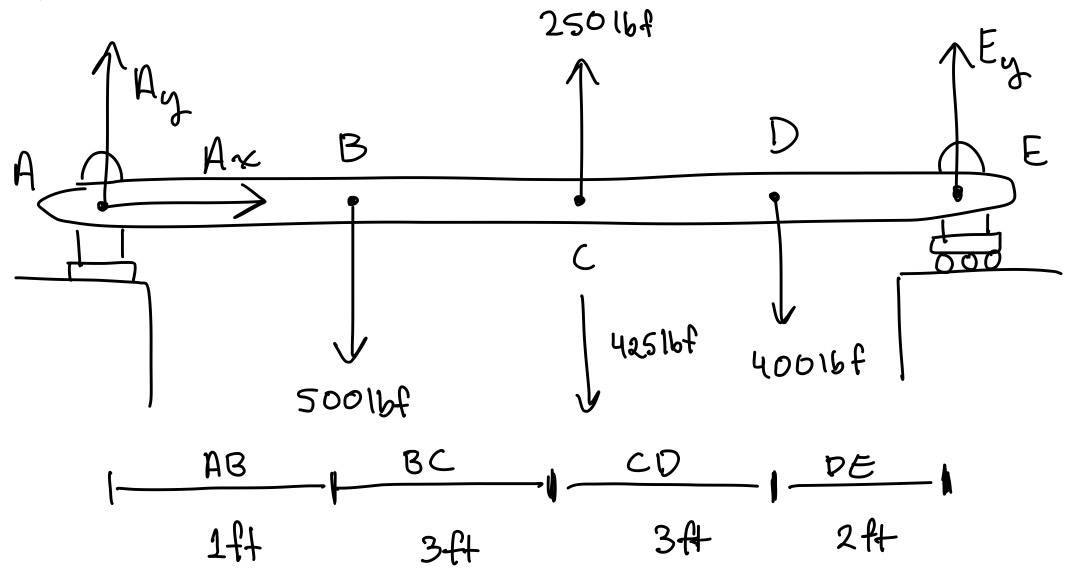 250lbf
Ay
Ey
A
Ax
B
D
E
C
425lbf
400lbf
500lbf
AB
BC
CD
DE
1ft
3ft
3ft
2ft